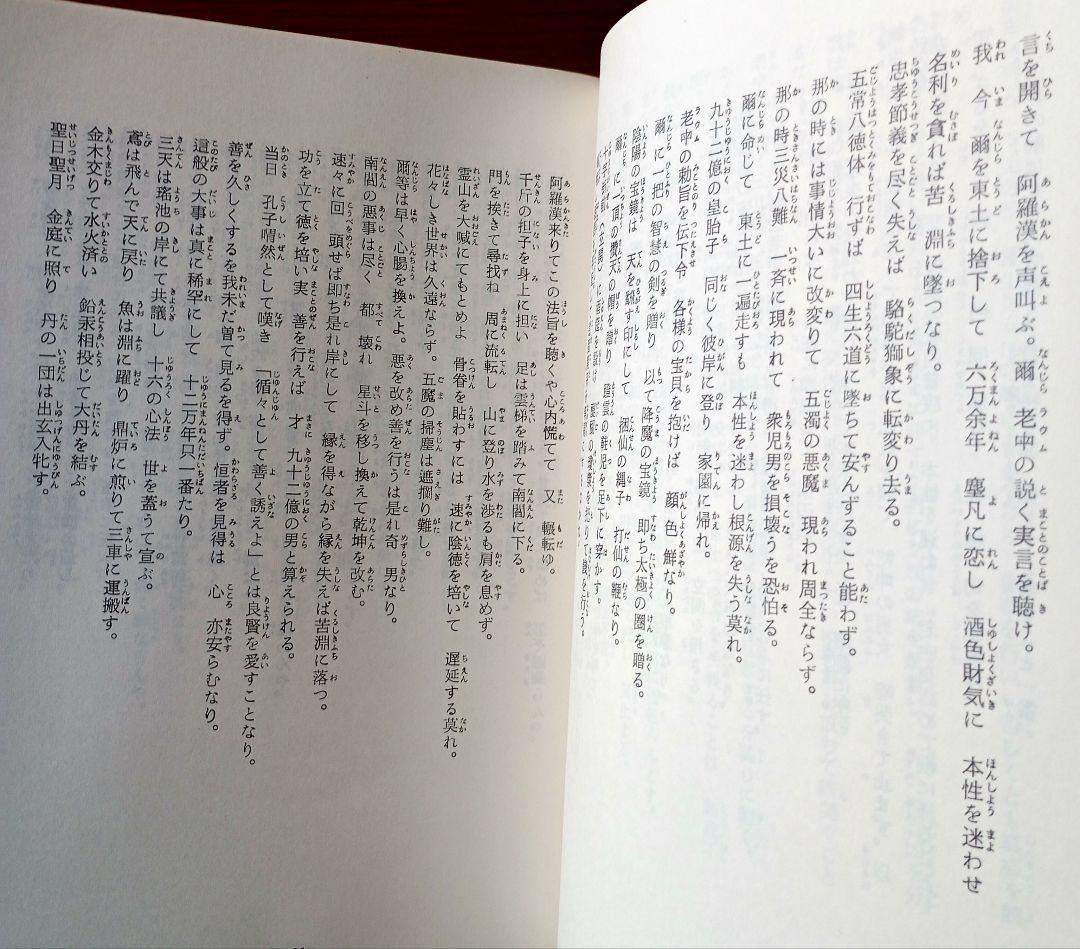 言を開きて　阿羅漢を声叫ぶ。爾　老中の説く実言を聴け。
我　今　爾を東土に捨下して　六万余年　塵凡に恋し　酒色財気に　本性を迷わせ
名利を貪れば苦　淵に墜つなり。
忠孝節義を尽く失えば　駱駝獅象に転変り去る。
五常八徳体　行ずば　四生六道に墜ちて安んずること能わず。
那の時には事情大いに改変りて　五濁の悪魔　現われ周全ならず。
那の時三災八難　一斉に現われて　衆児男を損壊うを恐怕る。
爾に命じて　東土に一遍走すも　本性を迷わし根源を失う莫れ。
九十二億の皇胎子　同じく彼岸に登り　家園に帰れ。
老中の勅旨を伝下令　各様の宝貝を抱けば　顔色鮮かなり。
爾　に一把の智慧の剣を贈り　以て降魔の宝鏡　即ち太極の圏を贈る。
陰陽の宝鏡は　天を翻す印にして　捆仙の縄子　打仙の鞭なり。
爾　に一頂の　天の帽を贈り　雲の鞋児を足下に穿かす。
阿羅漢来りてこの法旨を聴くや心内慌てて　又　輾転ゆ。
千斤の担子を身上に担い　足は雲梯を踏みて南閻に下る。
門を挨きて尋找ね　周に流転し　山に登り水を渉るも肩を息めず。
霊山を大喊にてもとめよ　骨脊を貼わすには　速に陰徳を培いて　遅延する莫れ。
花々しき世界は久遠ならず。五魔の掃塵は遮攔り難し。
爾等は早く心腸を換えよ。悪を改め善を行うは是れ奇　男なり。
南閻の悪事は尽く　都　壊れ　星斗を移し換えて乾坤を改む。
速々に回　頭せば即ち是れ岸にして　縁を得ながら縁を失えば苦淵に落つ。
功を立て徳を培い実　善を行えば　才　九十二億の男と算えられる。
当日　孔子喟然として嘆き　「循々として善く誘えよ」とは良賢を愛すことなり。
善を久しくするを我未だ曽て見るを得ず。恒者を見得は　心　亦安らむなり。
這般の大事は真に稀罕にして　十二万年只一番たり。
三天は瑤池の岸にて共議し　十六の心法　世を蓋うて宣ぶ。
鳶は飛んで天に戻り　魚は淵に躍り　鼎炉に煎りて三車に運搬す。
金木交りて水火済い　鉛汞相投じて大丹を結ぶ。
聖日聖月　金庭に照り　丹の一団は出玄入牝す。